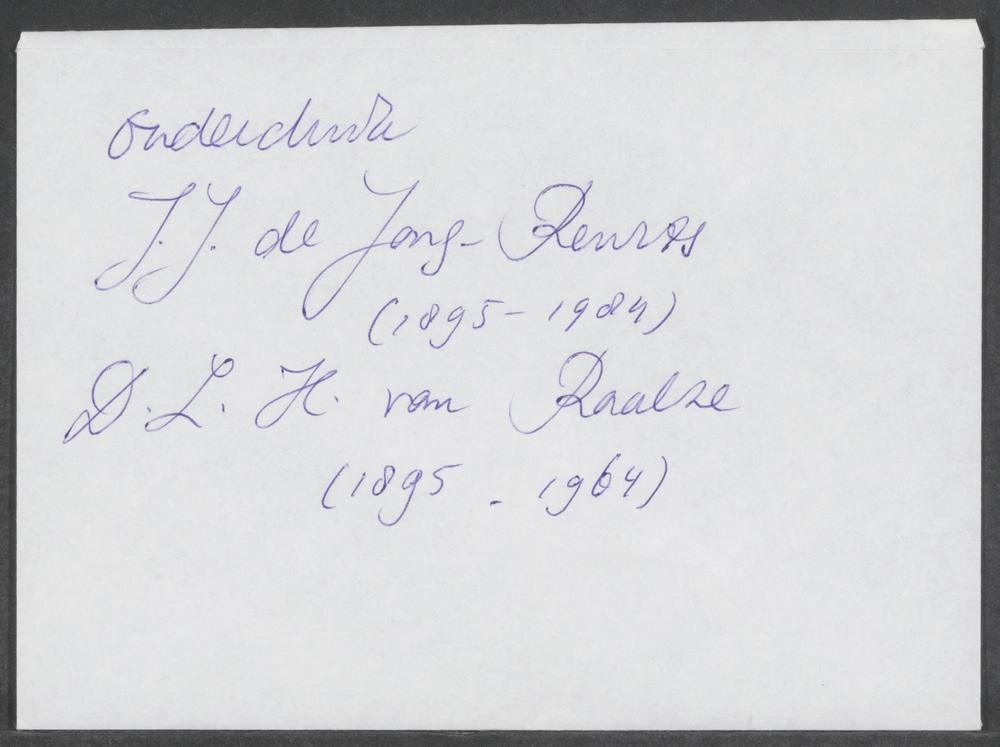 onderduik
J.J. de Jong-
(1895-1984)
D.L.H. van Raalte
(1895 - 1964)